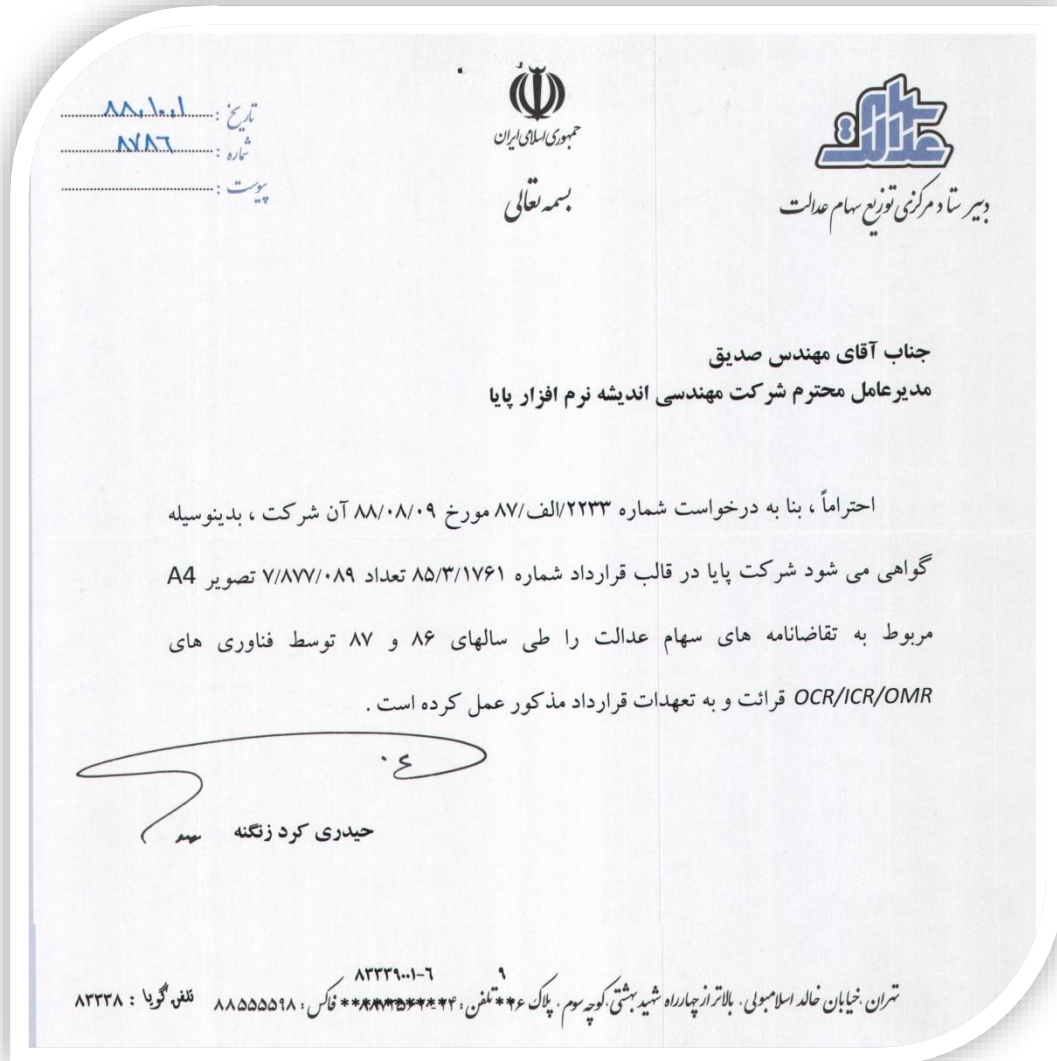 عدالت
دبیر ستاد مرکزی توزیع سهام عدالت
جمهوری اسلامی ایران
بسمه تعالی
تاریخ : ۸۸.۱۰.۱
شماره : ۸۷۸۶
پیوست :
جناب آقای مهندس صدیق
مدیرعامل محترم شرکت مهندسی اندیشه نرم افزار پایا
احتراماً ، بنا به درخواست شماره ۲۲۳۳/الف/۸۷ مورخ ۸۸/۰۸/۰۹ آن شرکت ، بدینوسیله
گواهی می شود شرکت پایا در قالب قرارداد شماره ۸۵/۳/۱۷۶۱ تعداد ۷/۸۷۷/۰۸۹ تصویر A4
مربوط به تقاضانامه های سهام عدالت را طی سالهای ۸۶ و ۸۷ توسط فناوری های
OCR/ICR/OMR قرائت و به تعهدات قرارداد مذکور عمل کرده است .
حیدری کرد زنگنه
۹ ۸۳۳۳۹۰۰۱-۶
تهران ، خیابان خالد اسلامبولی ، بالاتر از چهارراه شهید بهشتی ، کوچه سوم ، پلاک تلفن : فاکس : ۸۸۵۵۵۵۹۸ تلفن گویا : ۸۳۳۳۸